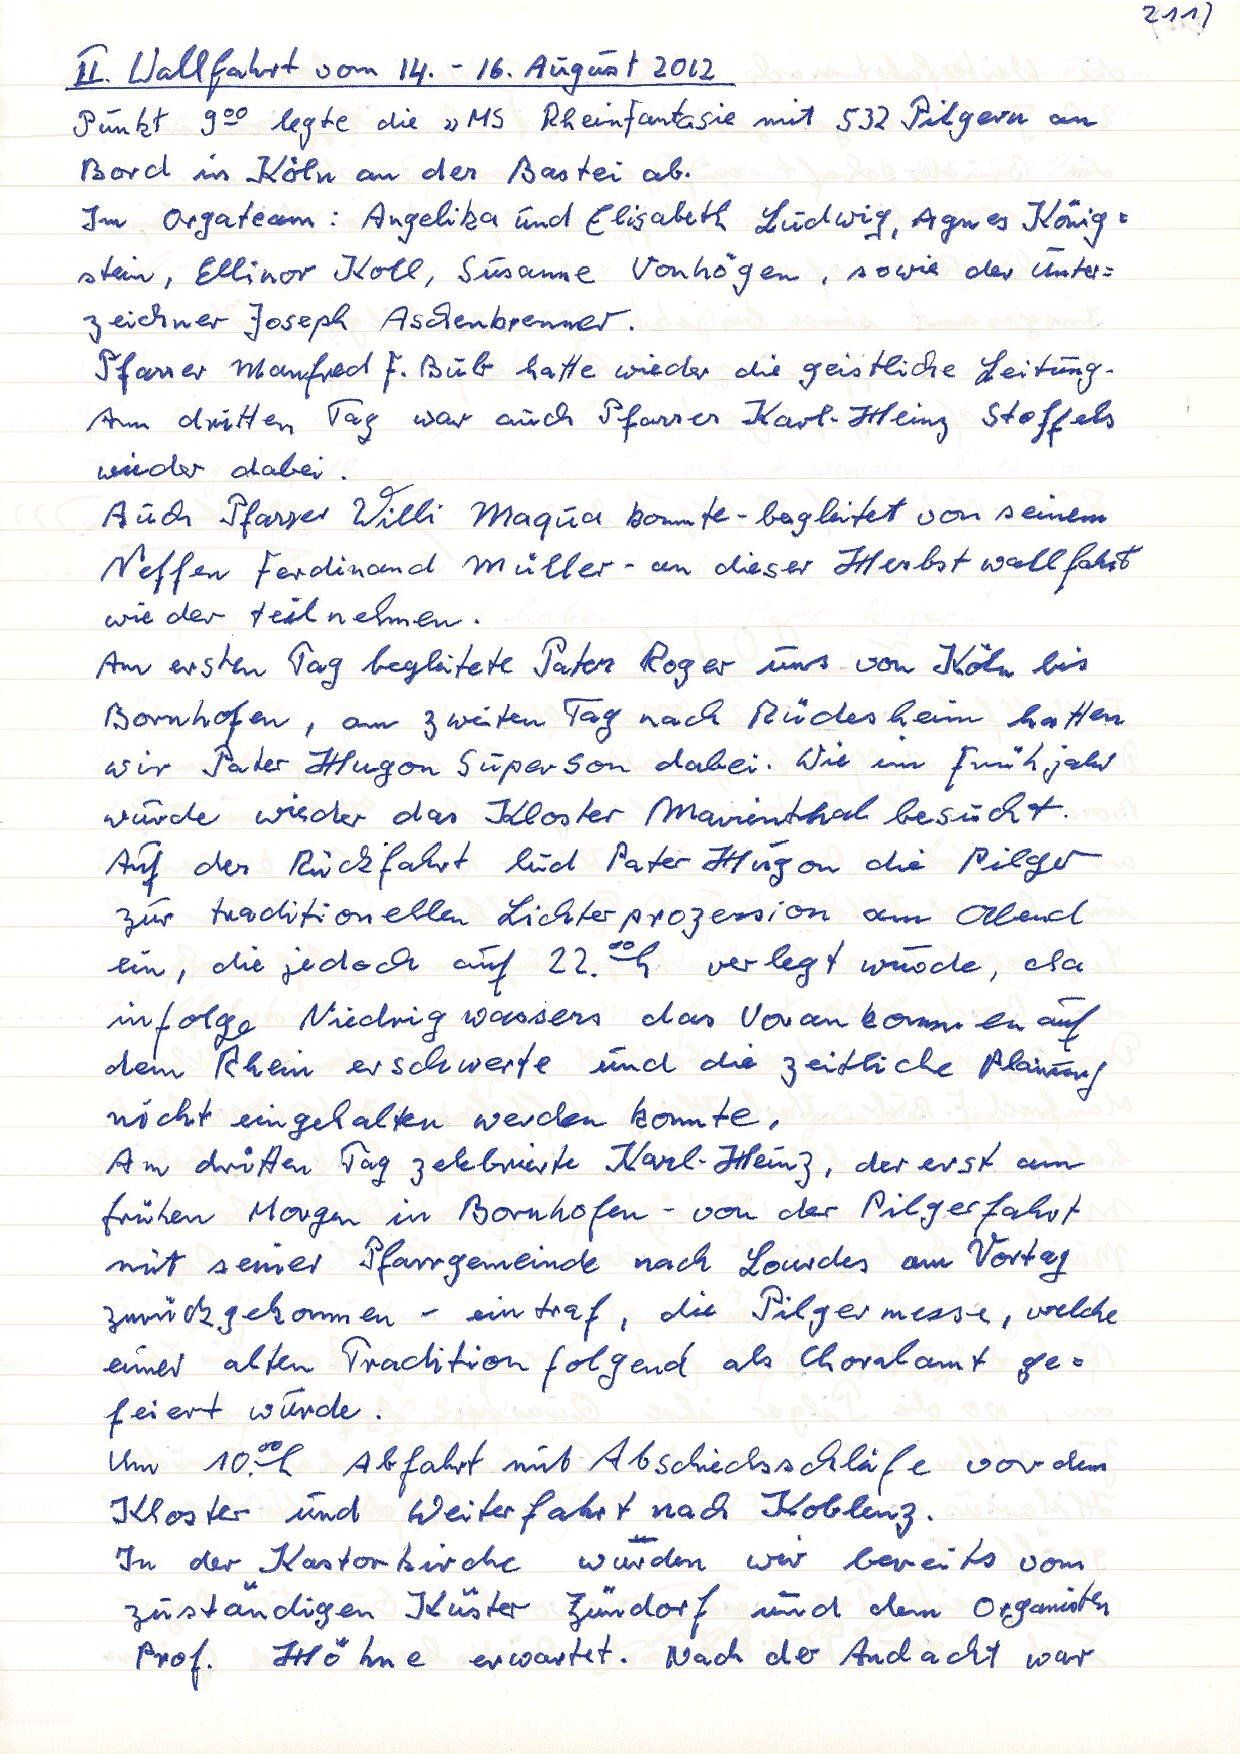 211)
II. Wallfahrt vom 14. - 16. August 2012
Punkt 9⁰⁰ legte die "MS Rheinfantasie mit 532 Pilgern an
Bord in Köln an der Bastei ab.
Im Orgateam: Angelika und Elisabeth Ludwig, Agnes König=
stein, Ellinor Koll, Susanne Vonhögen, sowie der Unter=
zeichner Joseph Aschenbrenner.
Pfarrer Manfred F. Bub hatte wieder die geistliche Leitung.
Am dritten Tag war auch Pfarrer Karl-Heinz Stoffels
wieder dabei.
Auch Pfarrer Willi Maqua konnte - begleitet von seinem
Neffen Ferdinand Müller - an dieser Herbstwallfahrt
wieder teilnehmen.
Am ersten Tag begleitete Pater Roger uns von Köln bis
Bornhofen, am zweiten Tag nach Rüdesheim hatten
wir Pater Hugon Superson dabei. Wie im Frühjahr
wurde wieder das Kloster Marienthal besucht.
Auf der Rückfahrt lud Pater Hugon die Pilger
zur traditionellen Lichterprozession am Abend
ein, die jedoch auf 22.⁰⁰h verlegt wurde, da
infolge Niedrigwassers das Vorankommen auf
dem Rhein erschwerte und die zeitliche Planung
nicht eingehalten werden konnte.
Am dritten Tag zelebrierte Karl-Heinz, der erst am
frühen Morgen in Bornhofen - von der Pilgerfahrt
mit seiner Pfarrgemeinde nach Lourdes am Vortag
zurückgekommen - eintraf, die Pilgermesse, welche
einer alten Tradition folgend als Choralamt ge=
feiert wurde.
Um 10.⁰⁰h Abfahrt mit Abschiedsschleife vor dem
Kloster und Weiterfahrt nach Koblenz.
In der Kastorkirche wurden wir bereits vom
zuständigen Küster Zündorf und dem Organisten
Prof. Höhne erwartet. Nach der Andacht war